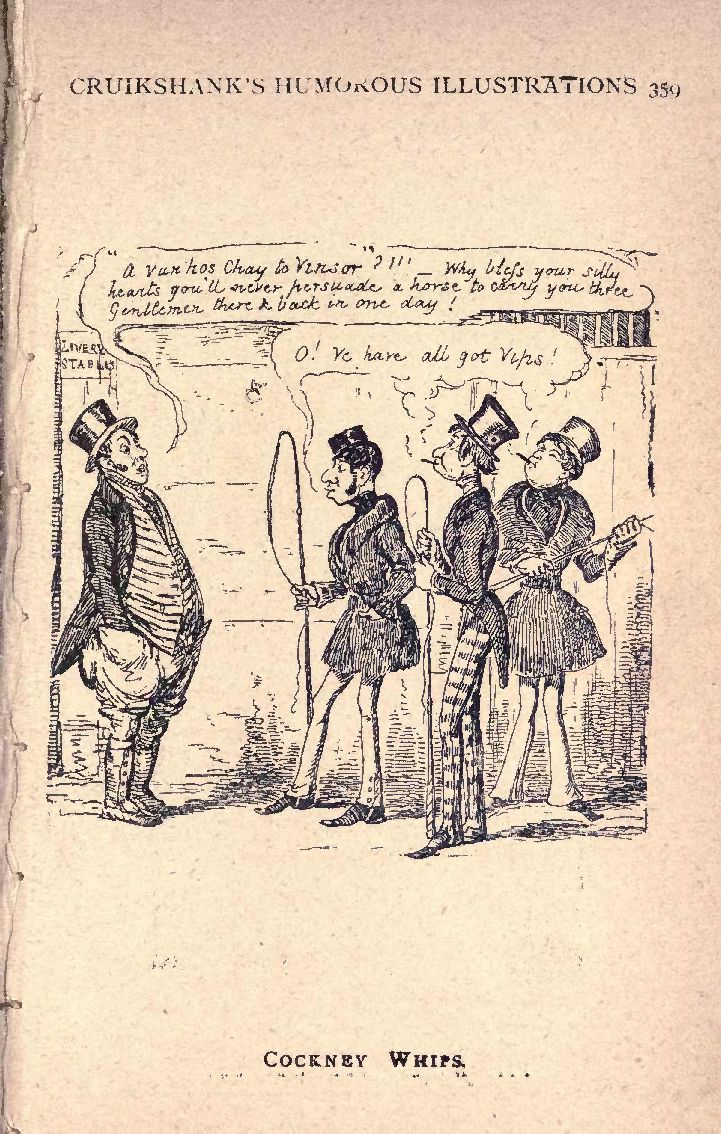 CRUIKSHANK'S HUMOROUS ILLUSTRATIONS 359
"A Vun hos Chay to Vinsor"?!!! _ Why bleſs your silly
hearts you'll never persuade a horse to carry you three
Gentlemen there & back in one day!
O! Ve have all got Vips!
LIVERY
STABLES
COCKNEY WHIPS.